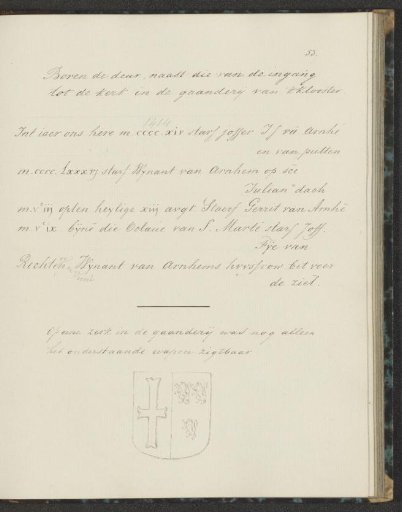 53.
Boven de deur, naast die van de ingang
tot de kerk in de gaanderij van 't klooster.
1414
Int iaer ons here m cccc xiv starf joffer
en van putten
m. cccc. Lxxxvj starf Wynant van Arnhem op sce
Julian˜ dach
m. vͨ iij opten heylige xiij avgt Staerf Gerrit van Arnhē
m. vͨ ix. die Octave van S. Martē starf Joff.
Fye van
Rechteren Wynant van Arnhems hvysfrow bit voer
de ziel.
Op eene zerk in de gaanderij was nog alleen
het onderstaande wapen zigtbaar